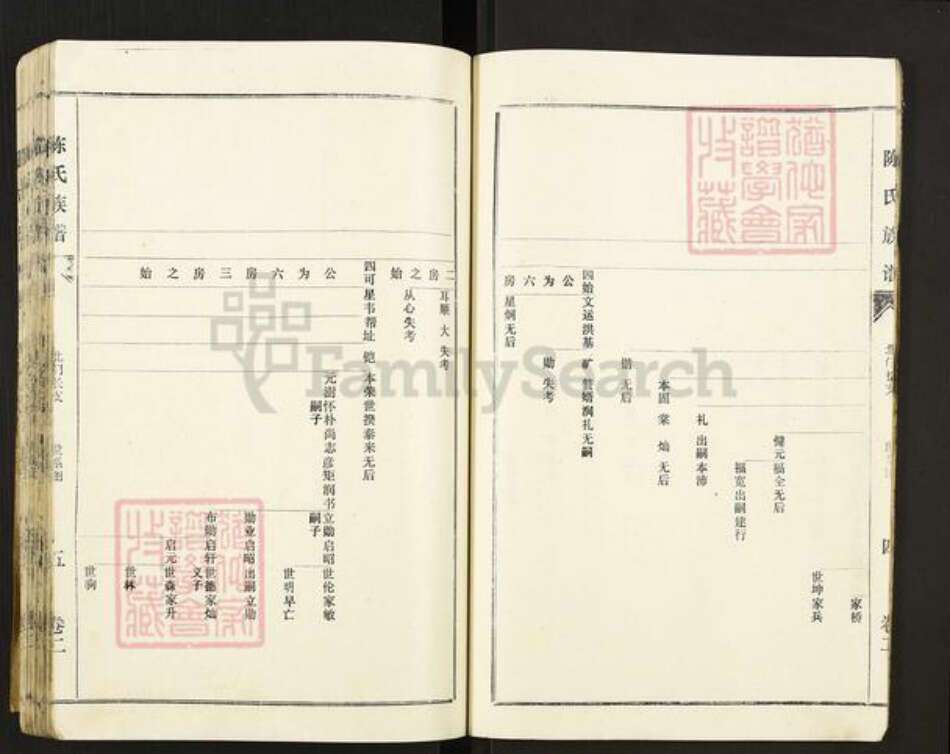 陈氏族谱
四
卷二
家桥
世坤家兵
健元福全无后
福宽出嗣建行
礼 出嗣本沛
本固 棠 灿 无后
无后
四始文运洪基 旷 菅婿润礼无嗣
勋 失考
公为六房
星炯无后
二房之始
耳顺 大 失考
从心失考
四可星韦帮址 铠 本荣世揆泰来无后
公为六房三房之始
元澍怀朴尚志彦矩润书立勋启昭世伦家敏
嗣子
嗣子
世明早亡
勋业启昭出嗣立勋
布勋启轩世德家灿
义子
启元世森家升
世林
世驹
陈氏族谱
北门长支
世系图
五
卷二
FamilySearch